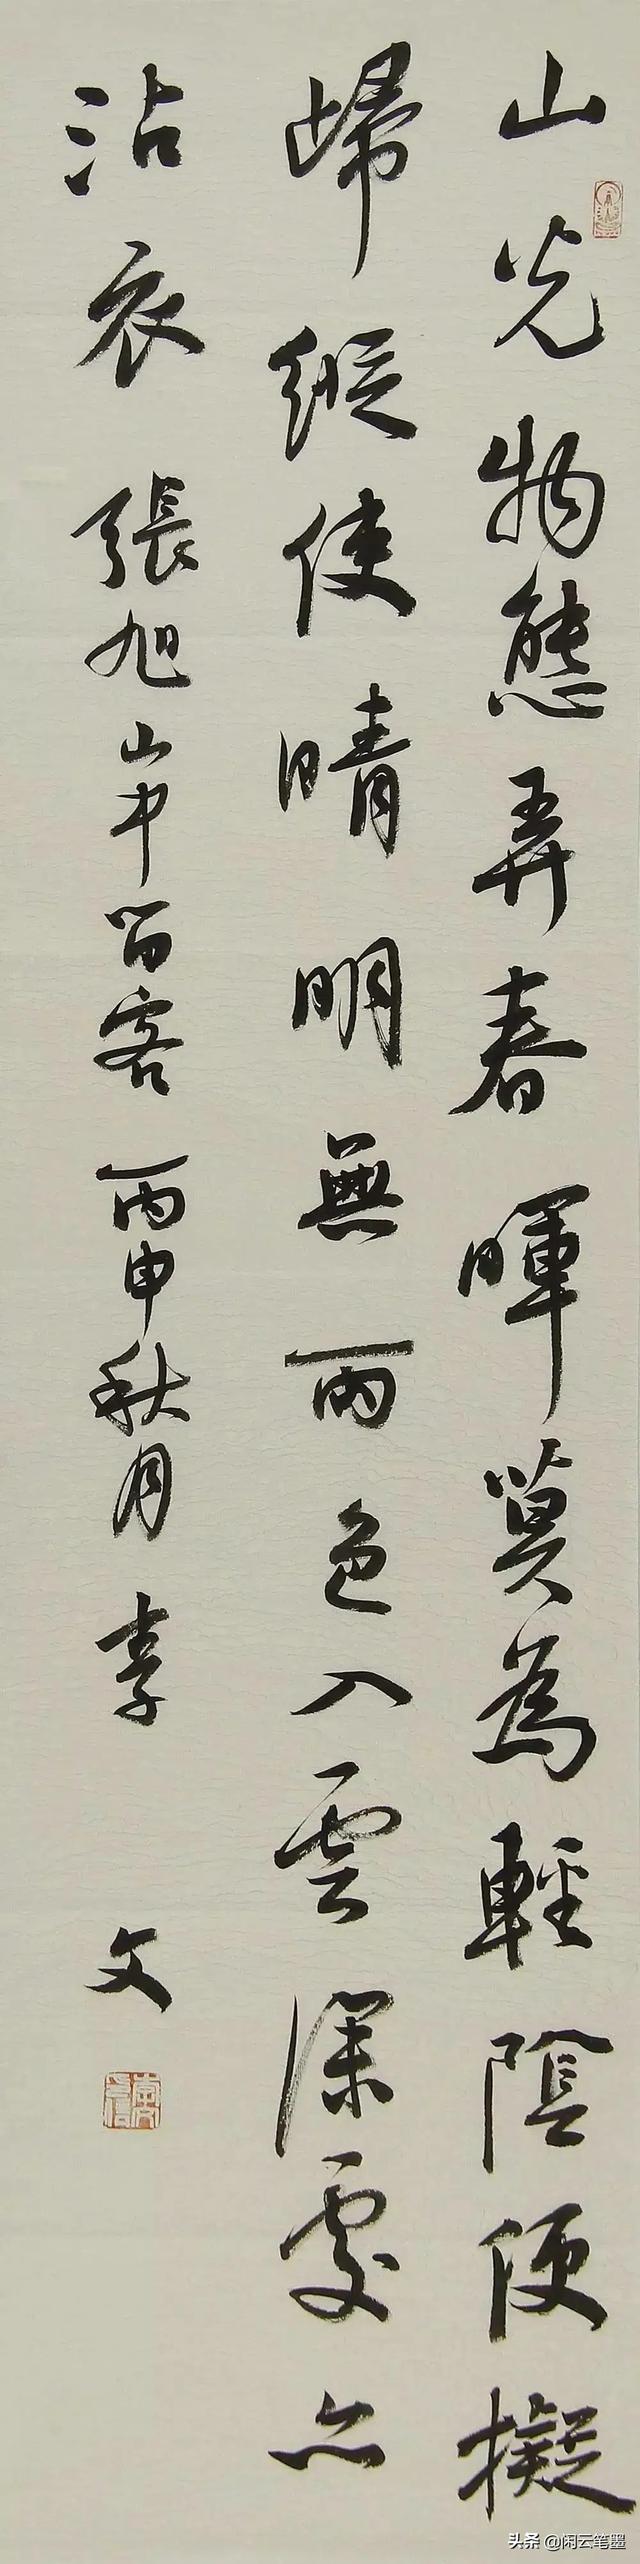 山光物態弄春暉莫為輕陰便擬
歸縱使晴明無雨色入雲深處亦
沾衣 張旭山中留客 丙申秋月 李 文
头条 @闲云笔墨